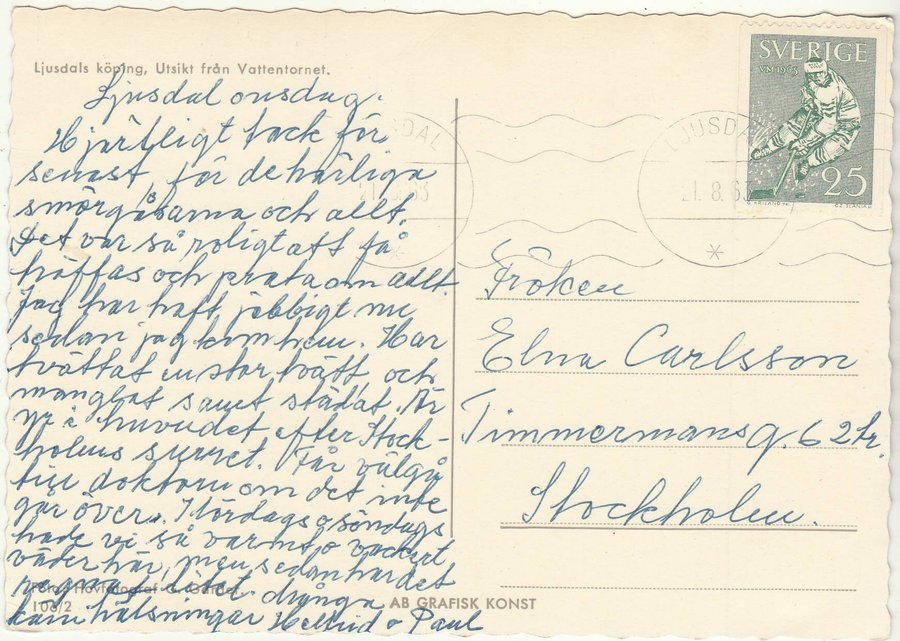 Ljusdals köping, Utsikt från Vattentornet.
Ljusdal onsdag.
Hjärtligt tack för
senast, för de härliga
smörgåsarna och allt.
Det var så roligt att få
träffas och prata om allt.
Jag har haft jobbigt nu
sedan jag kom hem. Har
tvättat en stor tvätt, och
manglat samt städat. Är
yr i huvudet efter Stock-
holms surret. Får väl gå
till doktorn om det inte
går över. I lördags o söndags
hade vi så varmt o vackert
väder här, men sedan har det
regnat litet. Många
kära hälsningar Helfrid o Paul
106/2
AB GRAFISK KONST
SVERIGE
VM 1963
25
LJUSDAL
21.8.63
LJUSDAL
21.8.63
Fröken
Elna Carlsson
Timmermansg. 6 2 tr.
Stockholm.